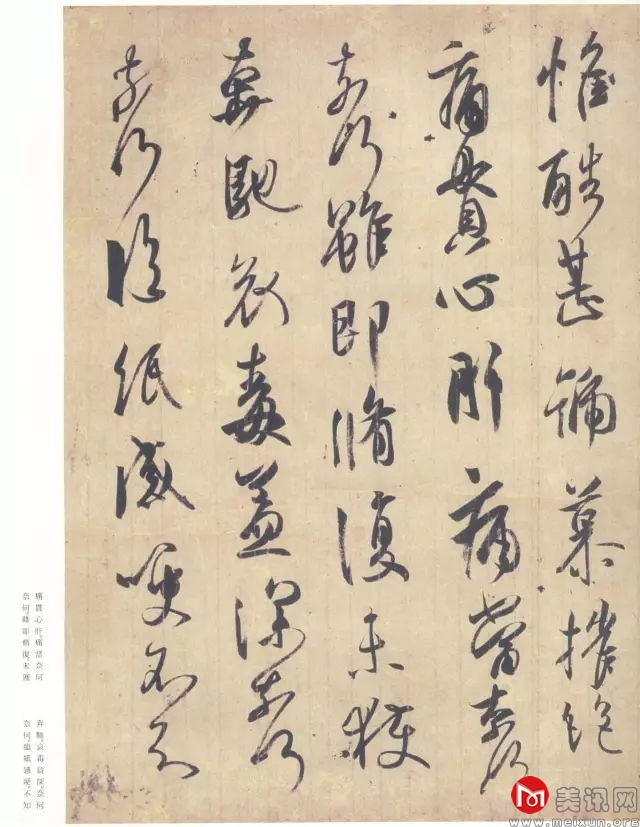 惟酷甚號慕摧絶
痛貫心肝痛當奈何
奈何雖即脩復未獲
奔馳哀毒益深奈何
奈何臨紙感哽不知
痛貫心肝。痛當奈何
奈何。雖即脩復未獲
奔馳。哀毒益深。奈何
奈何。臨紙感哽。不知
美讯网
www.meixun.org